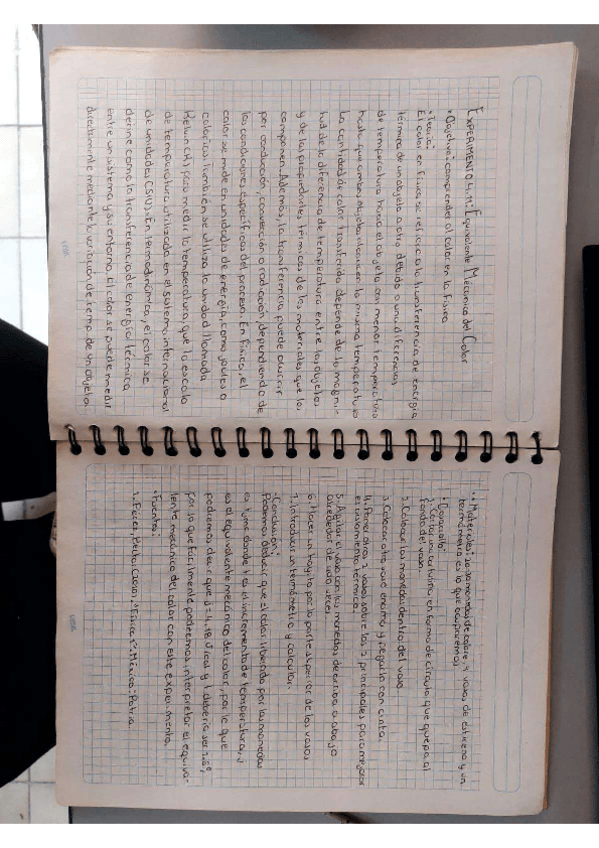 EXPERIMENTO 4.1: Equivalente Mécanico del Calor
•Objetivo: comprender el calor en la física
•Teoría:
El calor en física se refiere a la transferencia de energía
térmica de un objeto a otro debido a una diferencias
de temperatura hacia el objeto con menor temperatura
hasta que ambos objetos alcancen la misma temperatura
La cantidad de calor transferido depende de la magni-
tud de la diferencia de temperatura entre los objetos
y de las propiedades térmicas de los materiales que los
componen. Además, la transferencia puede ocurrir
por conducción, convección o radiación, dependiendo de
las condiciones específicas del proceso. En física, el
calor se mide en unidades de energía, como joules o
calorías. También se utiliza la unidad llamada
Kelvin (K) para medir la temperatura, que la escala
de temperatura utilizada en el sistema internacional
de unidades (SIU). En termodinámica, el calor se
define como la transferencia de energía térmica
entre un sistema y su entorno. El calor se puede medir
directamente mediante la variación de temp de un objeto.
•Materiales: monedas de cobre, 4 vasos de estireno y un
termómetro es lo que ocuparemos
•Desarrollo:
1. Cortar una cartulina en forma de círculo que quepa al
fondo del vaso.
2. Colocar las monedas dentro del vaso
3. Colocar otro vaso encima y pegarlo con cinta.
4. Poner otros 2 vasos sobre los 2 principales para mejorar
el aislamiento térmico.
5. Agitar el vaso con las monedas de arriba a abajo
alrededor de veces.
6. Hacer un hoyito por la parte superior de los vasos
7. Introducir un termómetro y calcular.
•Conclusión:
Podemos deducir que el calor liberado por las monedas
es donde t es el incremento de temperatura, J
es el equivalente mecánico del calor, por lo que
podremos decir que J = 4.18 J/cal y t debería ser
por lo que fácilmente podremos interpretar el equiva-
lente mecánico del calor con este experimento.
•Fuentes:
1. Pérez, Héctor "Física 1". México: Patria.